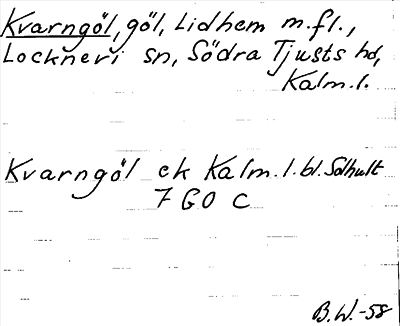 Kvarngöl, göl, Lidhem m.fl.,
Locknevi sn, Södra Tjusts hd,
Kalm. l.
Kvarngöl ek Kalm. l. bl. Solhult
7 G0 c
B.W.-58